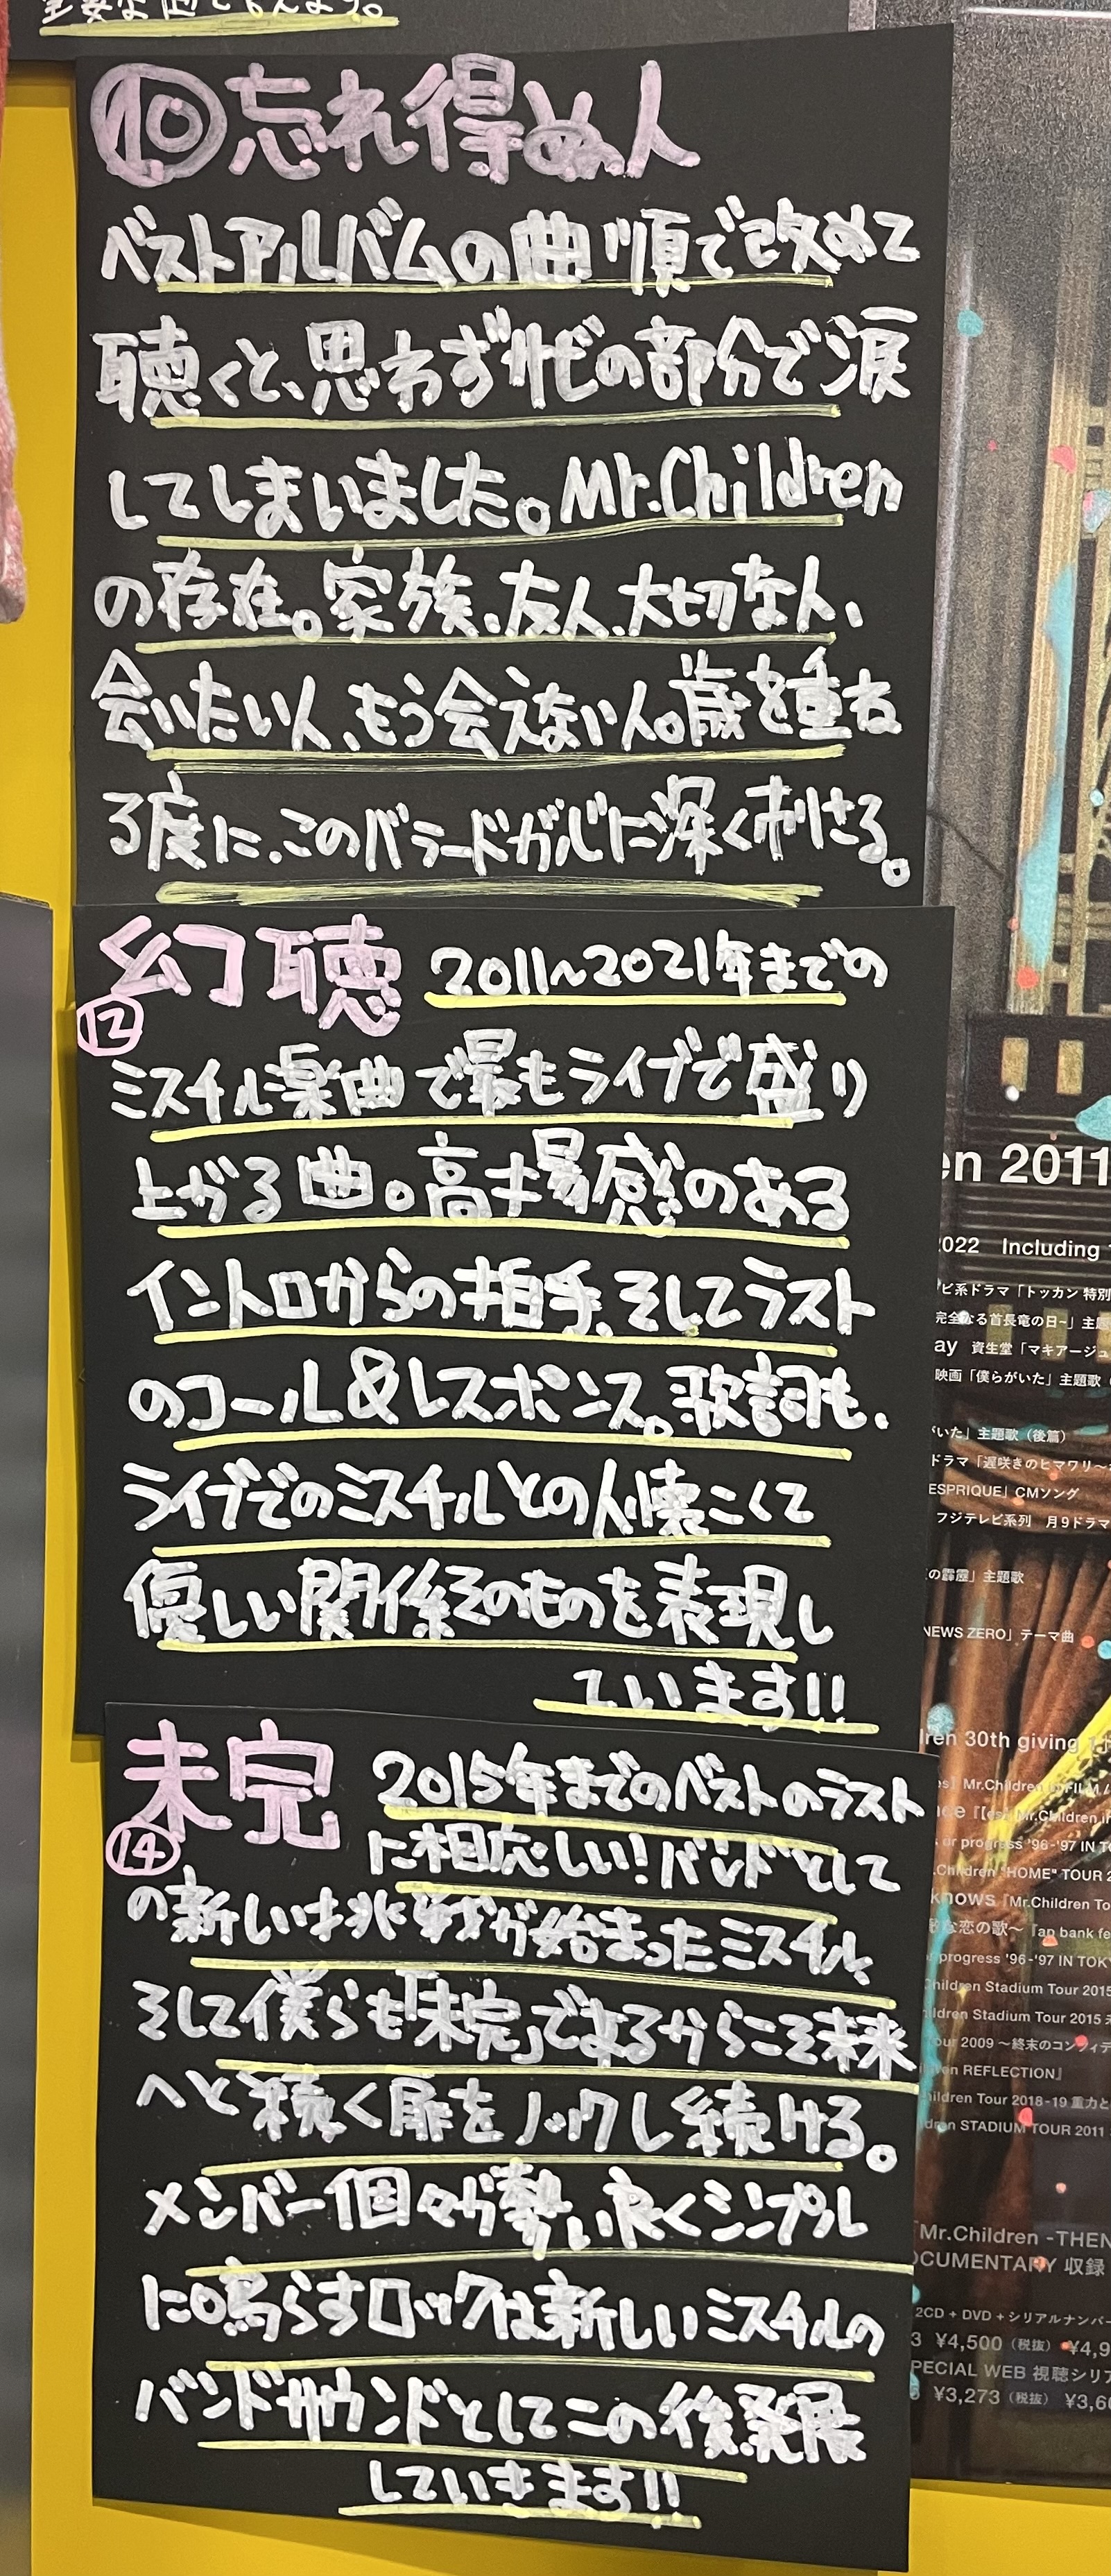 ⑩忘れ得ぬ人
ベストアルバムの曲順で改めて
聴くと、思わずサビの部分で涙
してしまいました。Mr.Children
の存在。家族、友人、大切な人、
会いたい人、もう会えない人。歳を重ね
る度に、このバラードが心に深く刺さる。
幻聴 2011〜2021年までの
⑫
ミスチル楽曲で最もライブで盛り
上がる曲。高揚感のある
イントロからの拍手、そしてラスト
のコール&レスポンス。歌詞も、
ライブでのミスチルとの人懐こくて
優しい関係そのものを表現し
ています!!
未完 2015年までのベストのラスト
⑭ に相応しい!バンドとして
の新しい挑戦が始まったミスチル
そして僕らも「未完」であるからこそ未来
へと続く扉をノックし続ける。
メンバー個々が勢い良くシンプル
に鳴らすロックは新しいミスチルの
バンドサウンドとしてこの後発展
していきます!!
en 2011
2022 Including
ビ系ドラマ「トッカン 特別
完全なる首長竜の日~」主題
ay 資生堂「マキアージュ
映画「僕らがいた」主題歌
がいた」主題歌(後篇)
ドラマ「遅咲きのヒマワリ~
ESPRIQUE」CMソング
フジテレビ系列 月9ドラマ
の霹靂」主題歌
NEWS ZERO」テーマ曲
ren 30th giving
es] Mr.Children in FILM
nce『[es] Mr.Children in
ur progress '96-'97 IN TO
.Children "HOME" TOUR 2
knows『Mr.Children To
な恋の歌〜『ap bank fe
progress '96-'97 IN TOK
Children Stadium Tour 2015
ildren Stadium Tour 2015 未
our 2009 〜終末のコンフィデ
ven REFLECTION』
ildren Tour 2018-19 重力と
dren STADIUM TOUR 2011
『Mr.Children -THEN
OCUMENTARY 収録
2CD + DVD + シリアルナンバー
3 ¥4,500(税抜) ¥4,9
PECIAL WEB 視聴シリア
¥3,273(税抜) ¥3,6